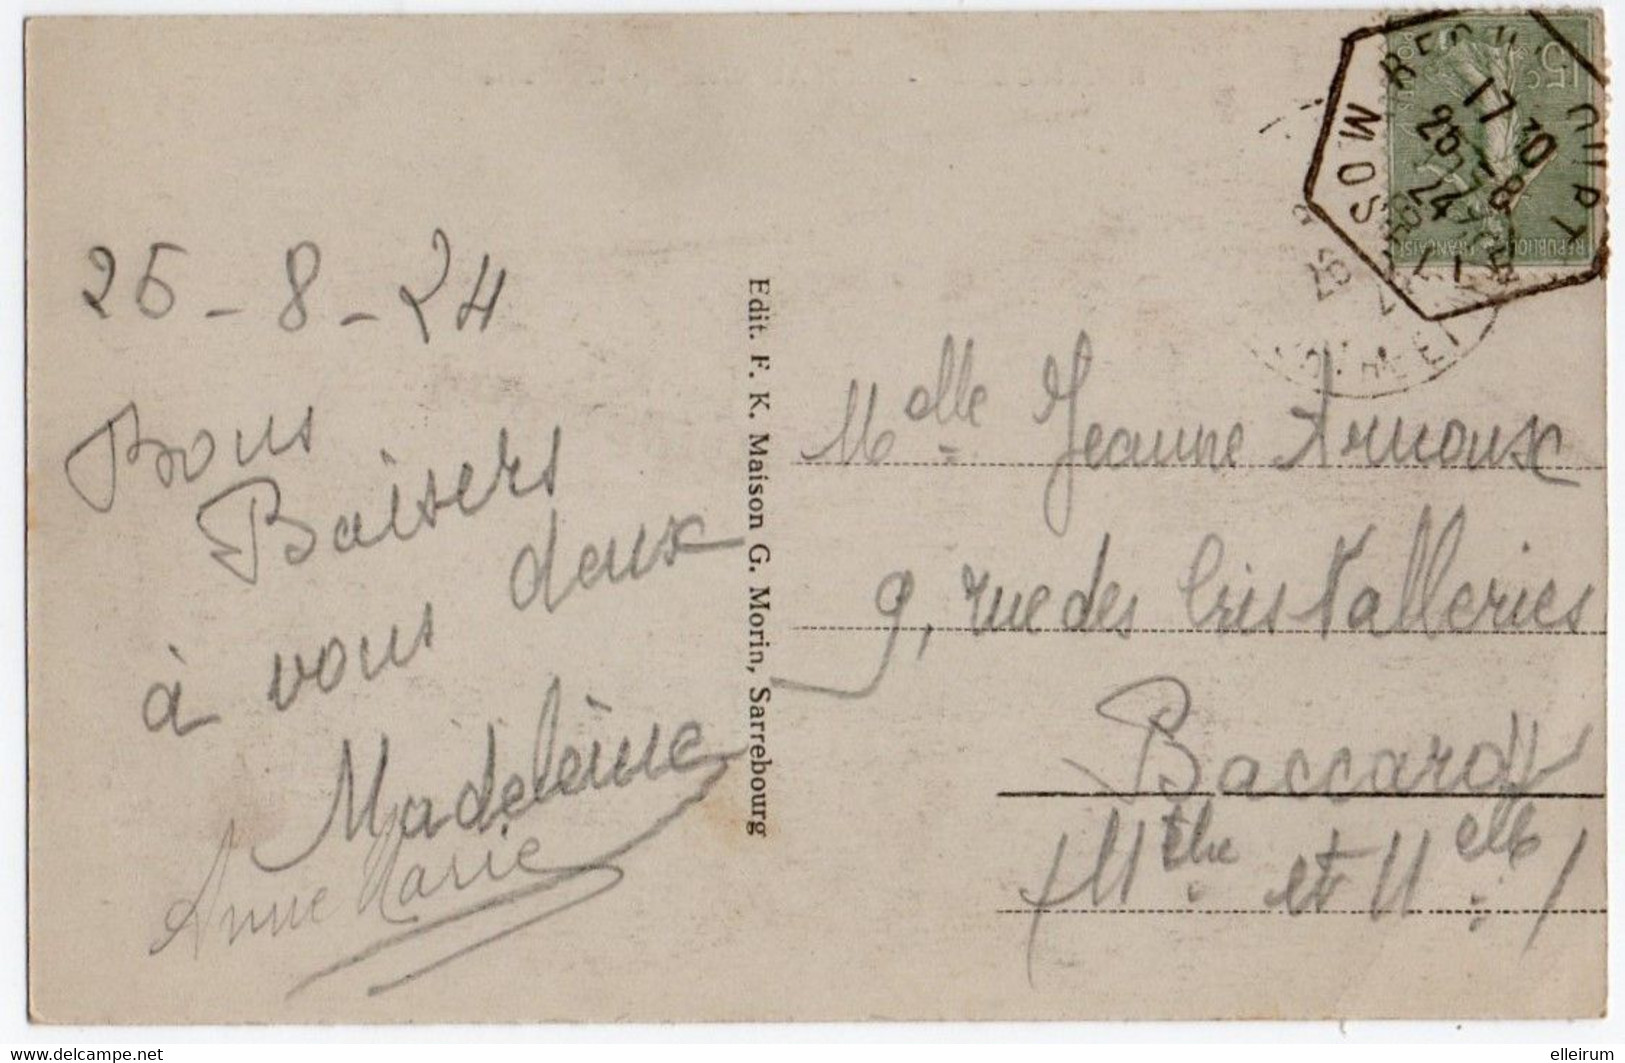 26-8-24
Bons
Baisers
à vous deux
Madeleine
Anne Marie
Edit. F. K. Maison G. Morin, Sarrebourg
Melle Jeanne Arnoux
9, rue des Cristalleries
Baccarat
(Mthe et Melle)
MOS
17 30
24
15c
RÉPUBLIQUE FRANÇAISE
delcampe.net
elleirum